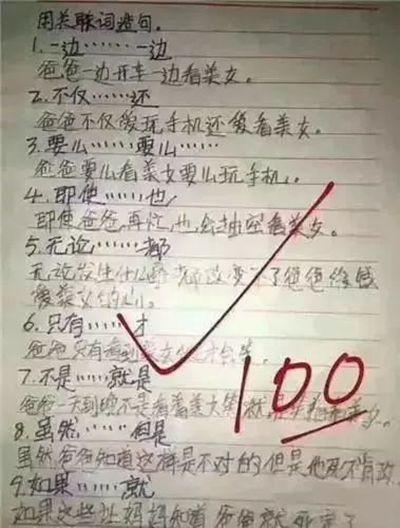 用关联词造句。
1.一边……一边
爸爸一边开车一边看美女。
2.不仅……还
爸爸不仅爱玩手机还爱看美女。
3.要么……要么……
爸爸要么看美女要么玩手机。
4.即使……也
即使爸爸再忙,也会抽空看美女。
5.无论……都
无论发生什么都改变不了爸爸
爱美女的心。
6.只有……才
爸爸只有看到美女才会笑。
7.不是……就是
爸爸一天到晚不是看着美女笑就是
100
8.虽然……但是
虽然爸爸知道这样是不对的但是他
9.如果……就
如果这些让妈妈知道爸爸就死定了